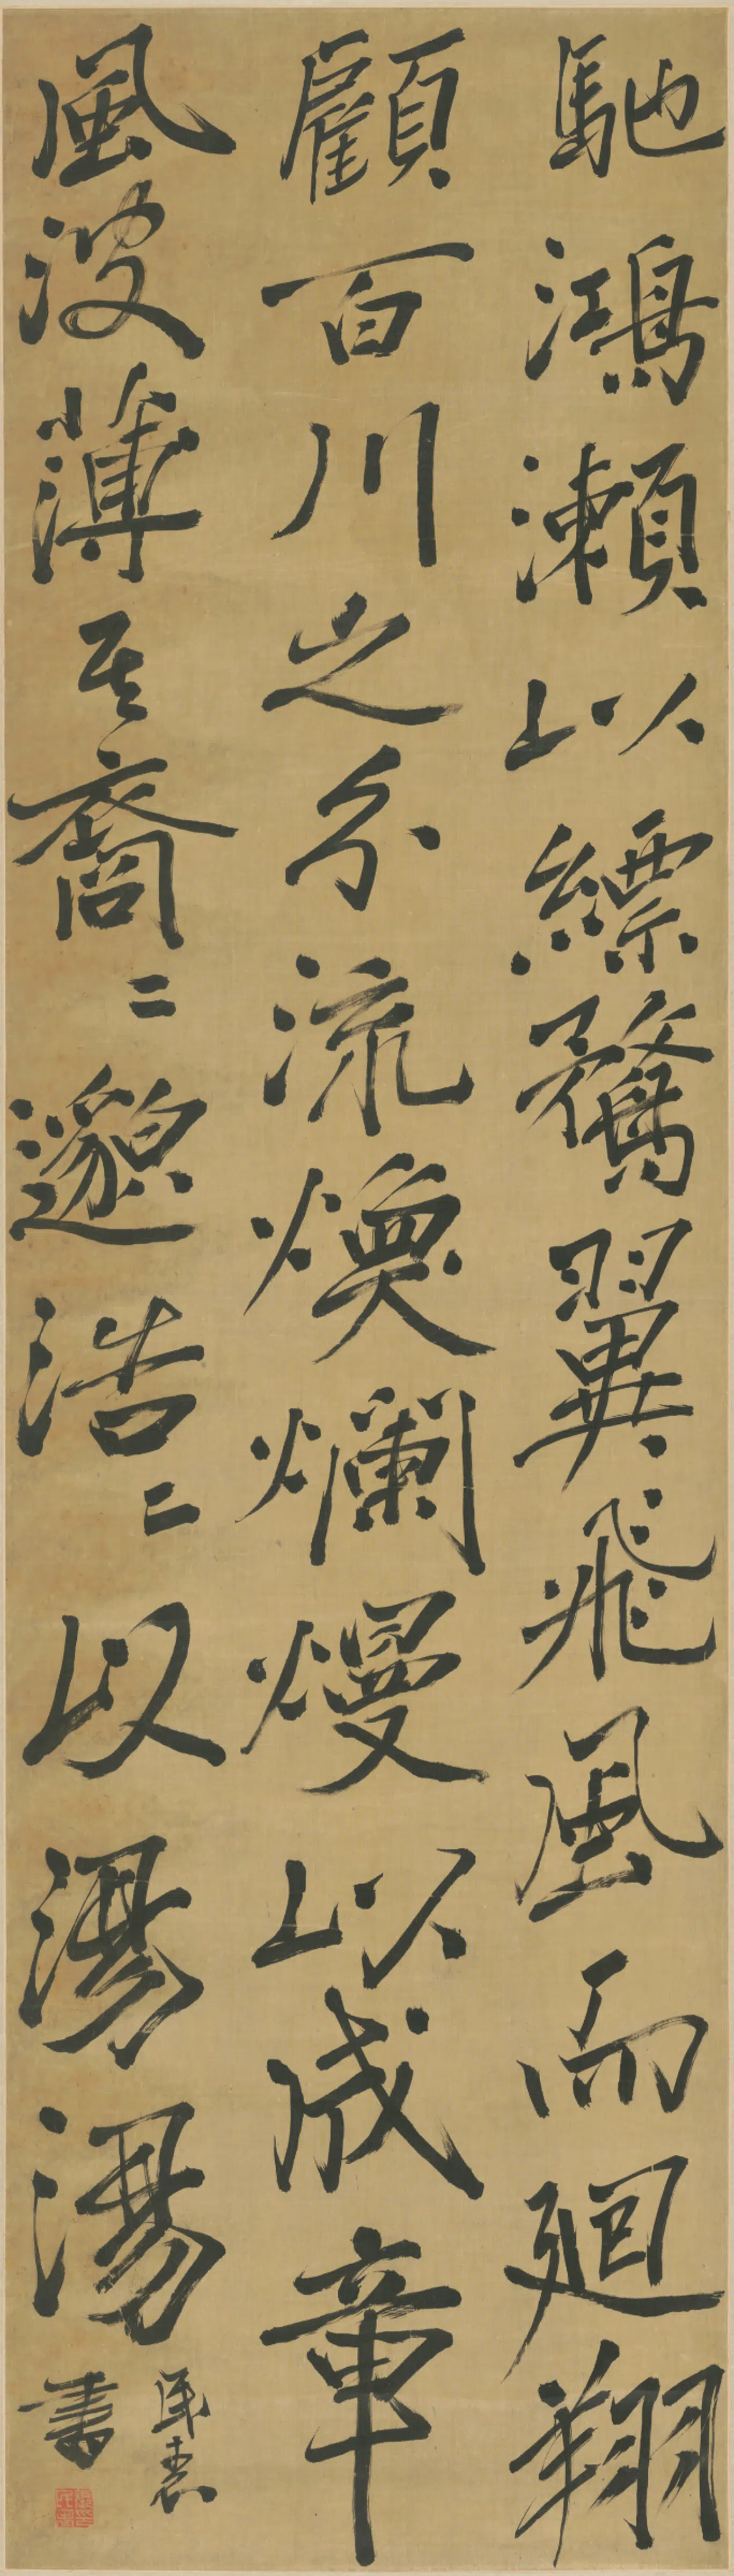 馳鴻瀨以縹騖翼飛風而迴翔
顧百川之分流煥爛熳以成章
風波薄其裔二邈浩二以湯湯
民表
書